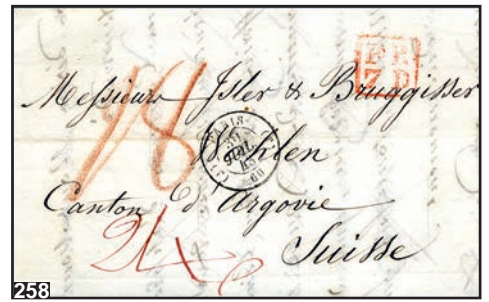 P P
Z P
Messieurs Isler & Bruggisser
18
PARIS
60
Wohlen
Canton d'Argovie
24
Suisse
258